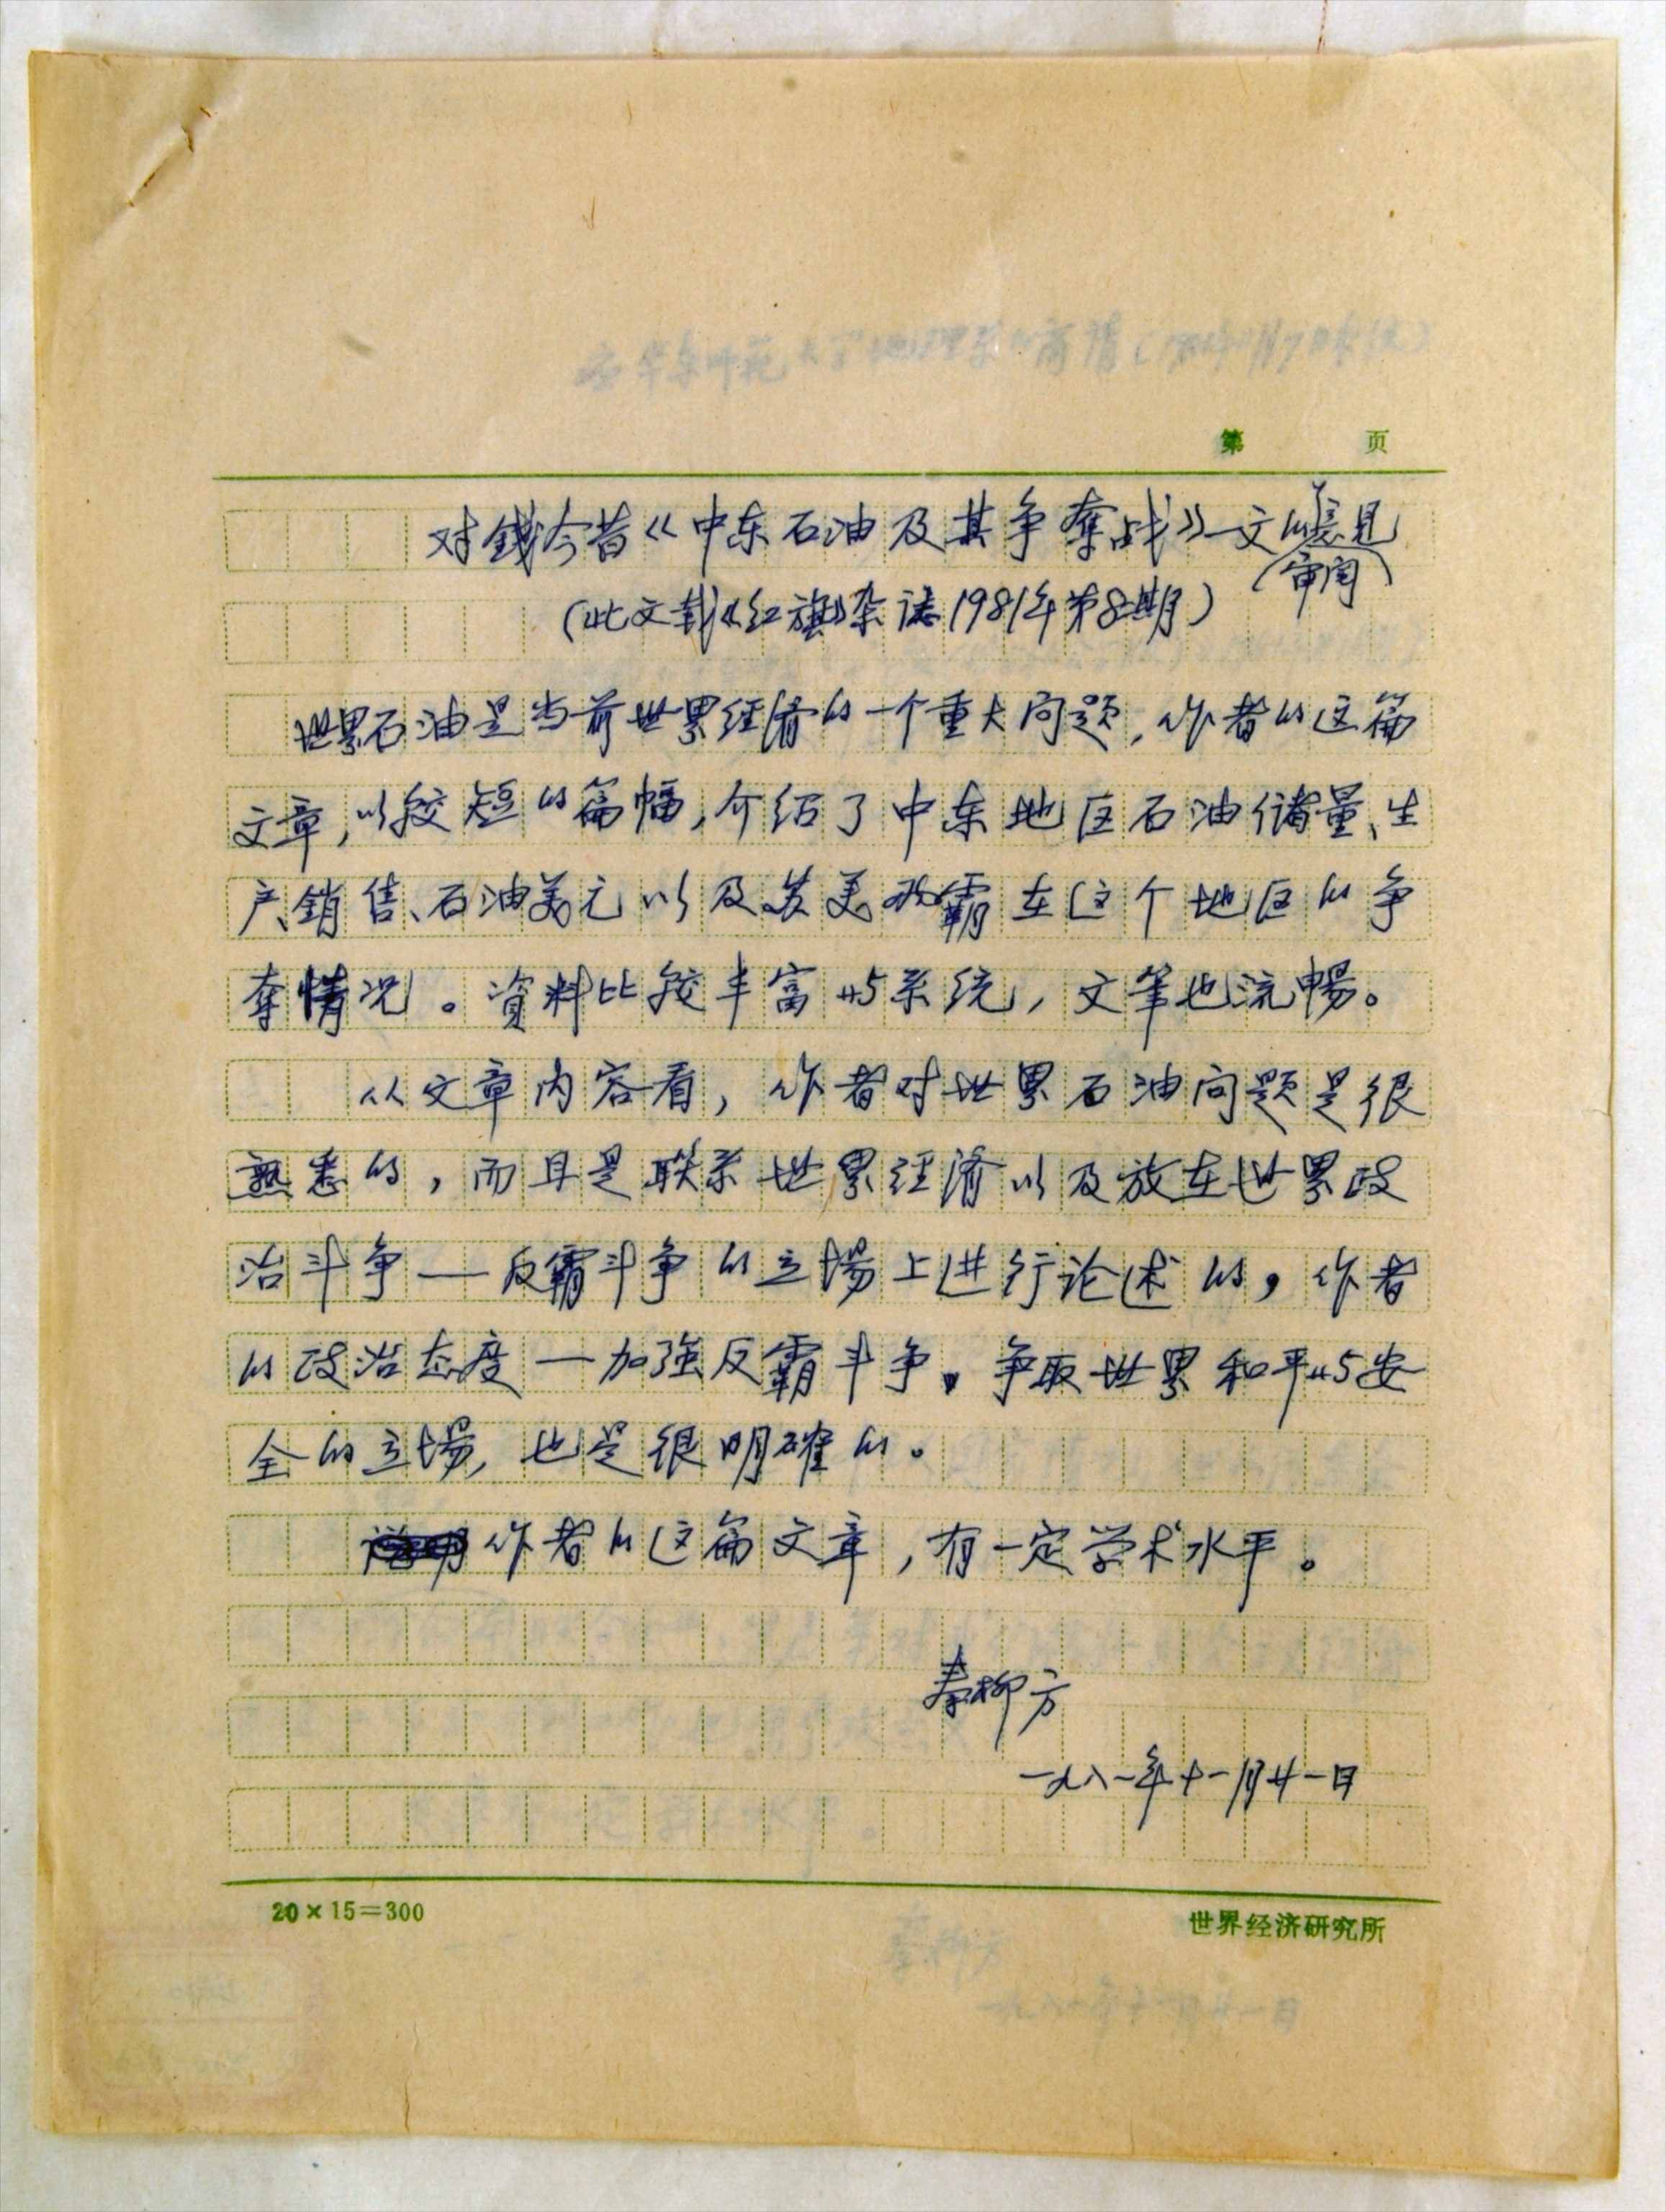 第 页
对錢今昔《中东石油及其争奪战》一文的审阅意见
(此文载《红旗》杂誌1981年第8期)
世界石油是当前世界经济的一个重大问题,作者的这篇
文章,以較短的篇幅,介绍了中东地区石油储量、生
产、銷售、石油美元以及苏美两霸在这个地区的争
奪情况。資料比較丰富与系统,文筆也流暢。
从文章内容看,作者对世界石油问题是很
熟悉的,而且是联系世界经济以及放在世界政
治斗争—反霸斗争的立場上进行论述的,作者
的政治态度—加强反霸斗争,争取世界和平与安
全的立場,也是很明確的。
作者的这篇文章,有一定学术水平。
秦柳方
一九八一年十一月廿一日
20×15=300
世界经济研究所